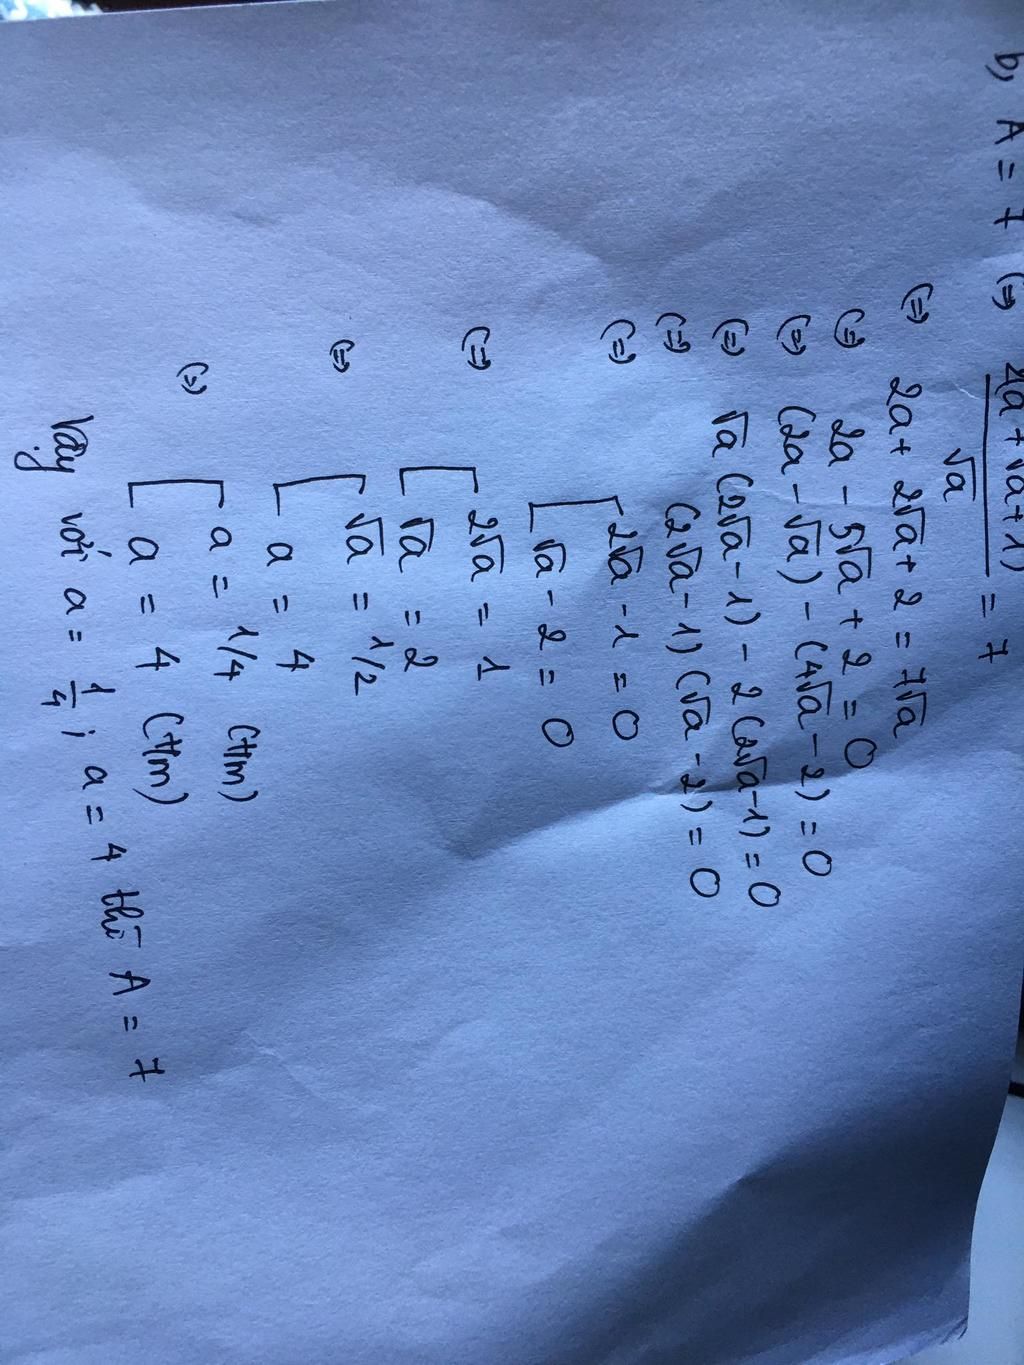 b) A = 7 (=) 2(a + √a + 1) / √a = 7
(=) 2a + 2√a + 2 = 7√a
(=) 2a - 5√a + 2 = 0
(=) (2a - √a) - (4√a - 2) = 0
(=) √a (2√a - 1) - 2 (2√a - 1) = 0
(=) (2√a - 1) (√a - 2) = 0
(=) [ 2√a - 1 = 0
√a - 2 = 0
(=) [ 2√a = 1
√a = 2
(=) [ √a = 1/2
a = 4
(=) [ a = 1/4 (tm)
a = 4 (tm)
Vậy với a = 1/4 ; a = 4 thì A = 7